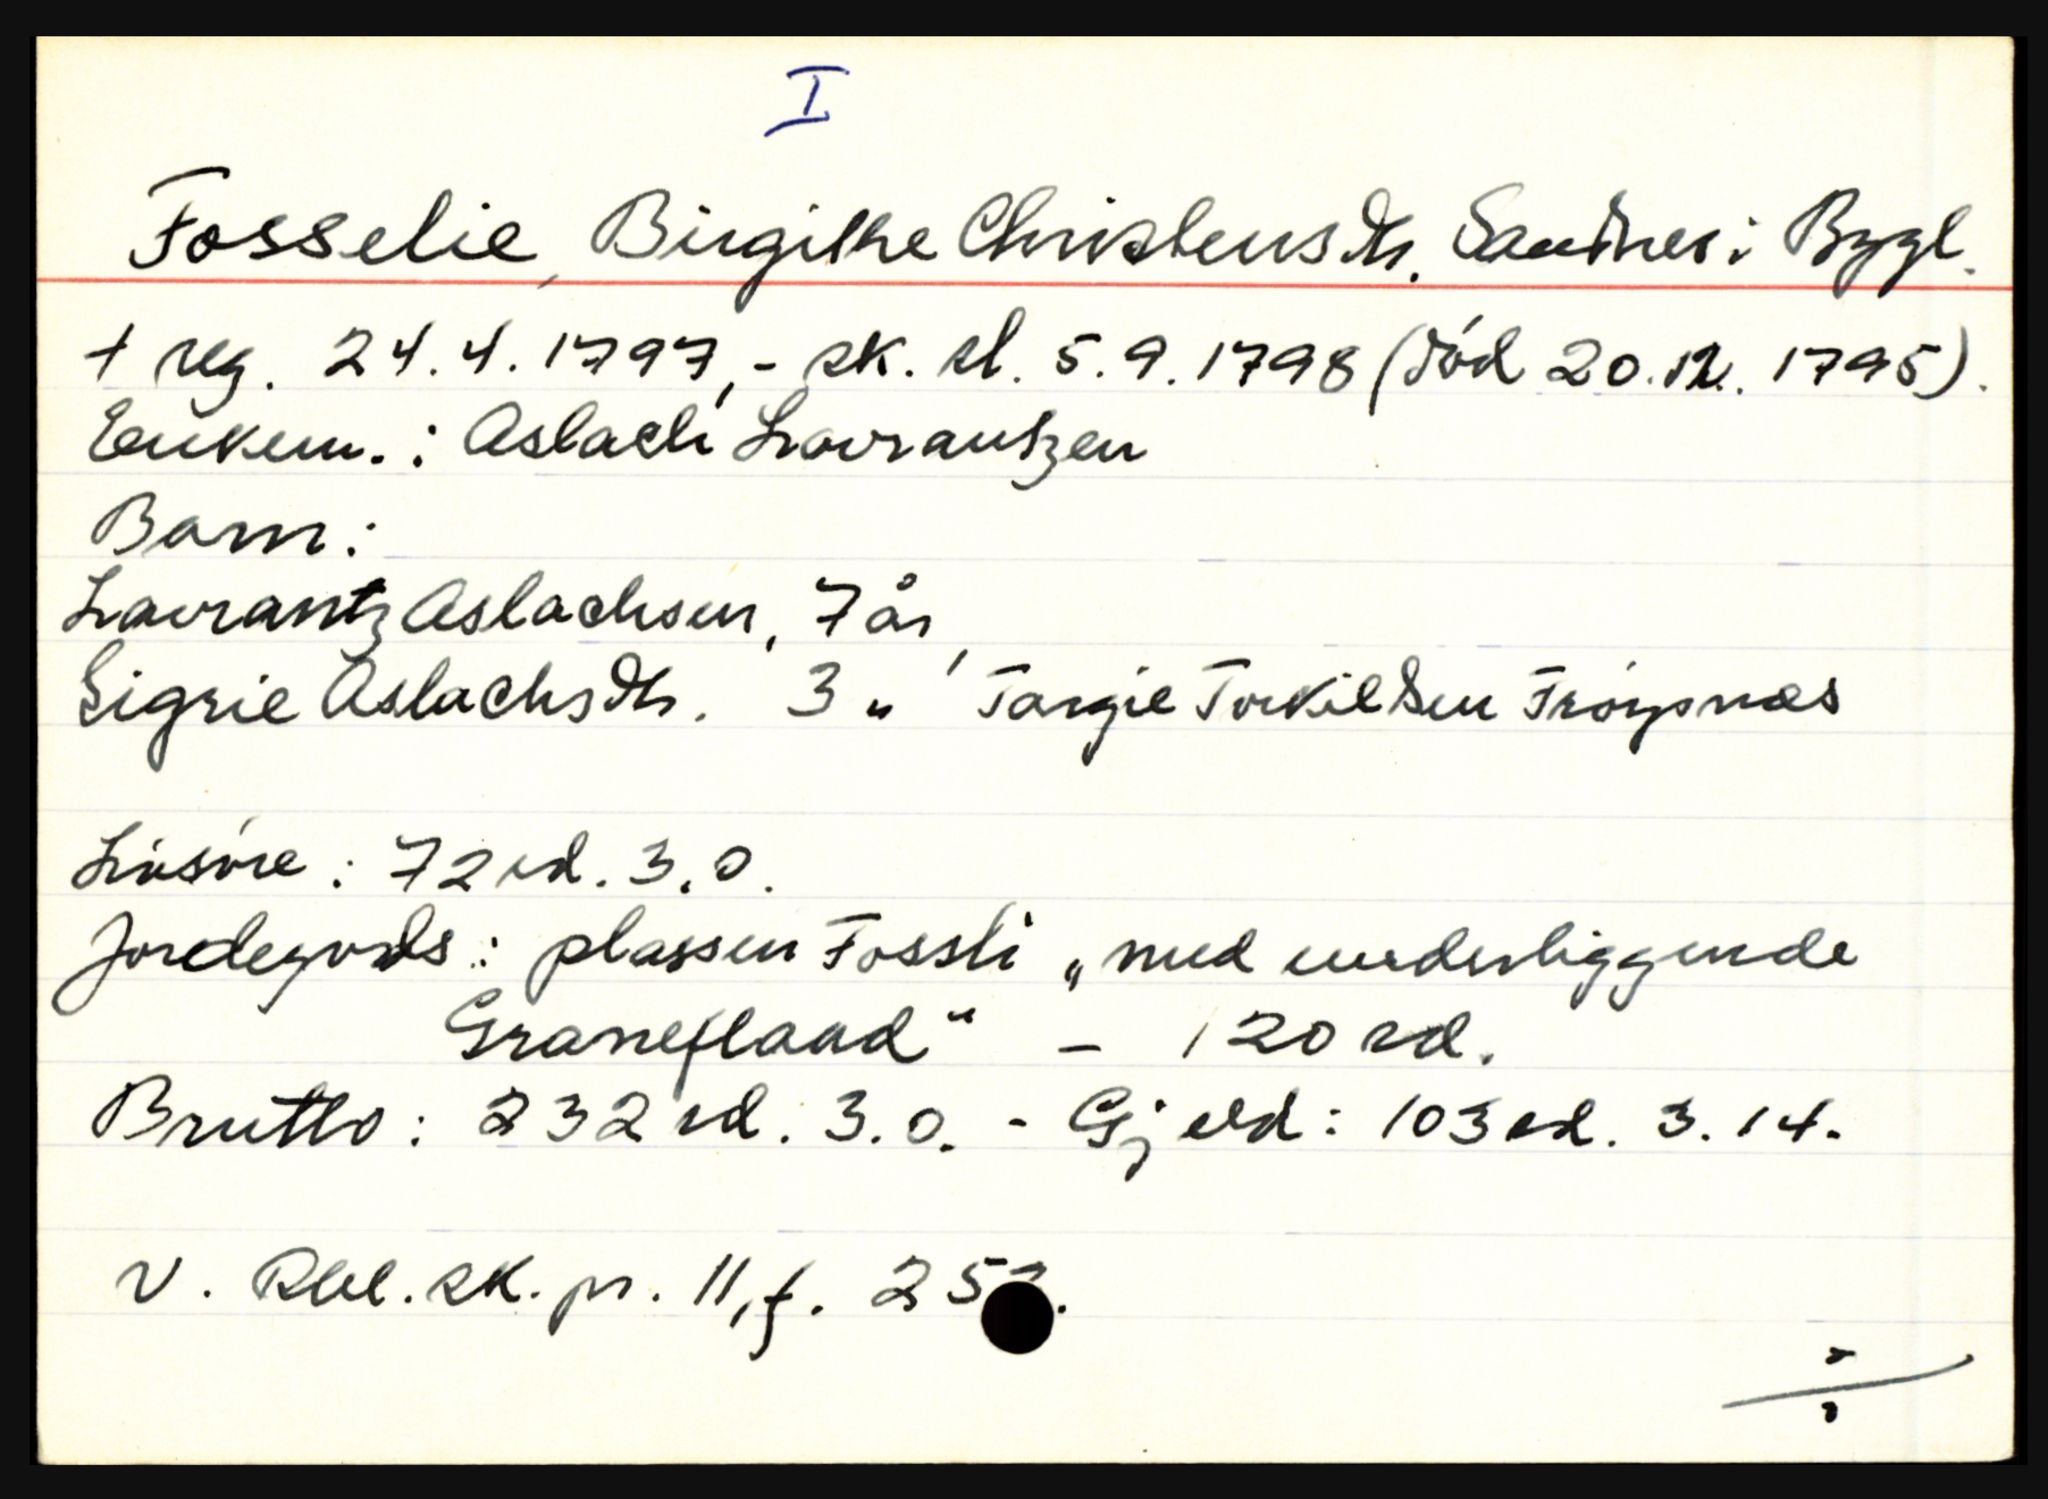 I
Fosselie, Birgithe Christensdtr. Sandnes i Bygl.
+ reg. 24.4.1797,- sk. sl. 5.9.1798 (død 20.12.1795).
Enkem.: Aslach Lavrantzen
Barn:
Lavrantz Aslachsen, 7 år,
Sigrie Aslachsdtr. 3 " Targie Torkildsen Frøysnæs
Løsøre: 72 rd. 3.0.
Jordegods: plassen Fossli „med underliggende
Graneflaad" - 120 rd.
Brutto: 232 rd. 3.0. - Gjeld: 103 rd. 3.14.
V. Rbl. sk. pr. 11, f.